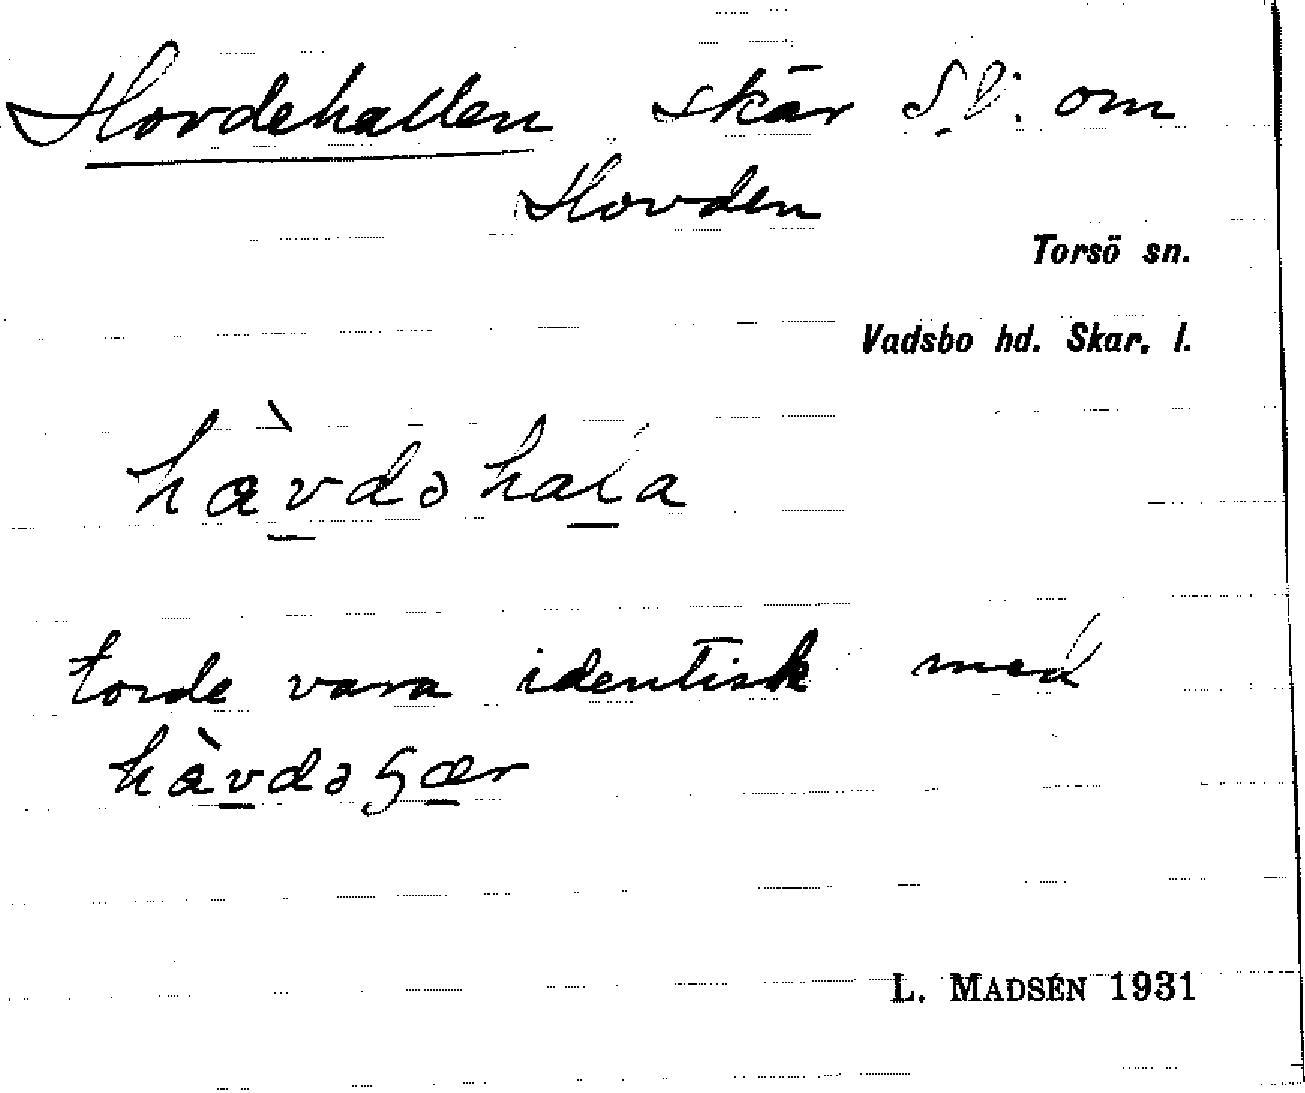 Hovdehallen skär S.V. om
Hovden
Torsö sn.
Vadsbo hd. Skar. l.
hàvdəhala
torde vara identisk med
hàvdəʂær
L. MADSÉN 1931